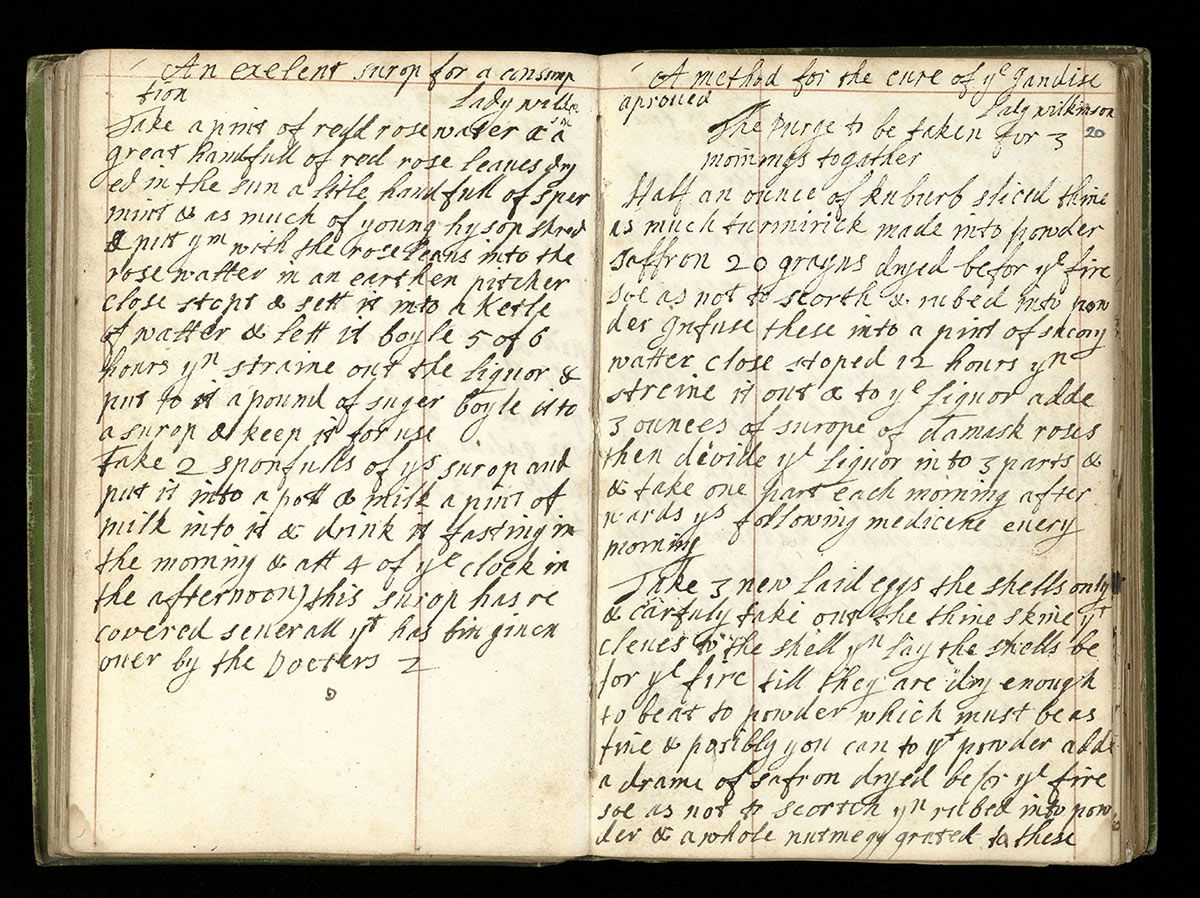 An exelent surop for a consump
tion
Lady wilkin
son
Take a pint of redd rose water & a
great handfull of red rose leaues dry
ed in the sun a litle handfull of sper
mint & as much of young hysop shred
& put ym with the rose leaus into the
rose watter in an earthen pitcher
close stopt & sett it into a ketle
of watter & lett it boyle 5 of 6
hours yn straine out the liquor &
put to it a pound of suger boyle it to
a surop & keep it for use
Take 2 sponfulls of ys surop and
put it into a pott & milk a pint of
milk into it & drink it fasting in
the morning & att 4 of ye clock in
the afternoon) this surop has re
couered seuerall yt has bin giuen
ouer by the Docters 2
A method for the cure of ye Jandise
aproued
Lady wilkinson
20
The purge to be taken for 3
mornings togather
Half an ounce of Ruburb sliced thine
as much turmirick made into powder
saffron 20 grayns dryed befor ye fire
soe as not to scorth & rubed into pow
der Infuse these into a pint of
watter close stoped 12 hours yn
streine it out & to ye liquor adde
3 ounces of surope of damask roses
then divide ye liquor into 3 parts &
& take one part each morning after
wards ys following medicine euery
morning
Take 3 new laid eggs the shells only
& carfuly take out the thine skine yt
cleues to the shell yn lay the shells be
for ye fire till they are dry enough
to beat to powder which must be as
fine & posibly you can to yt powder adde
a drame of safron dryed befor ye fire
soe as not to scortch yn rubed into pow
der & a whole nutmegg grated to these